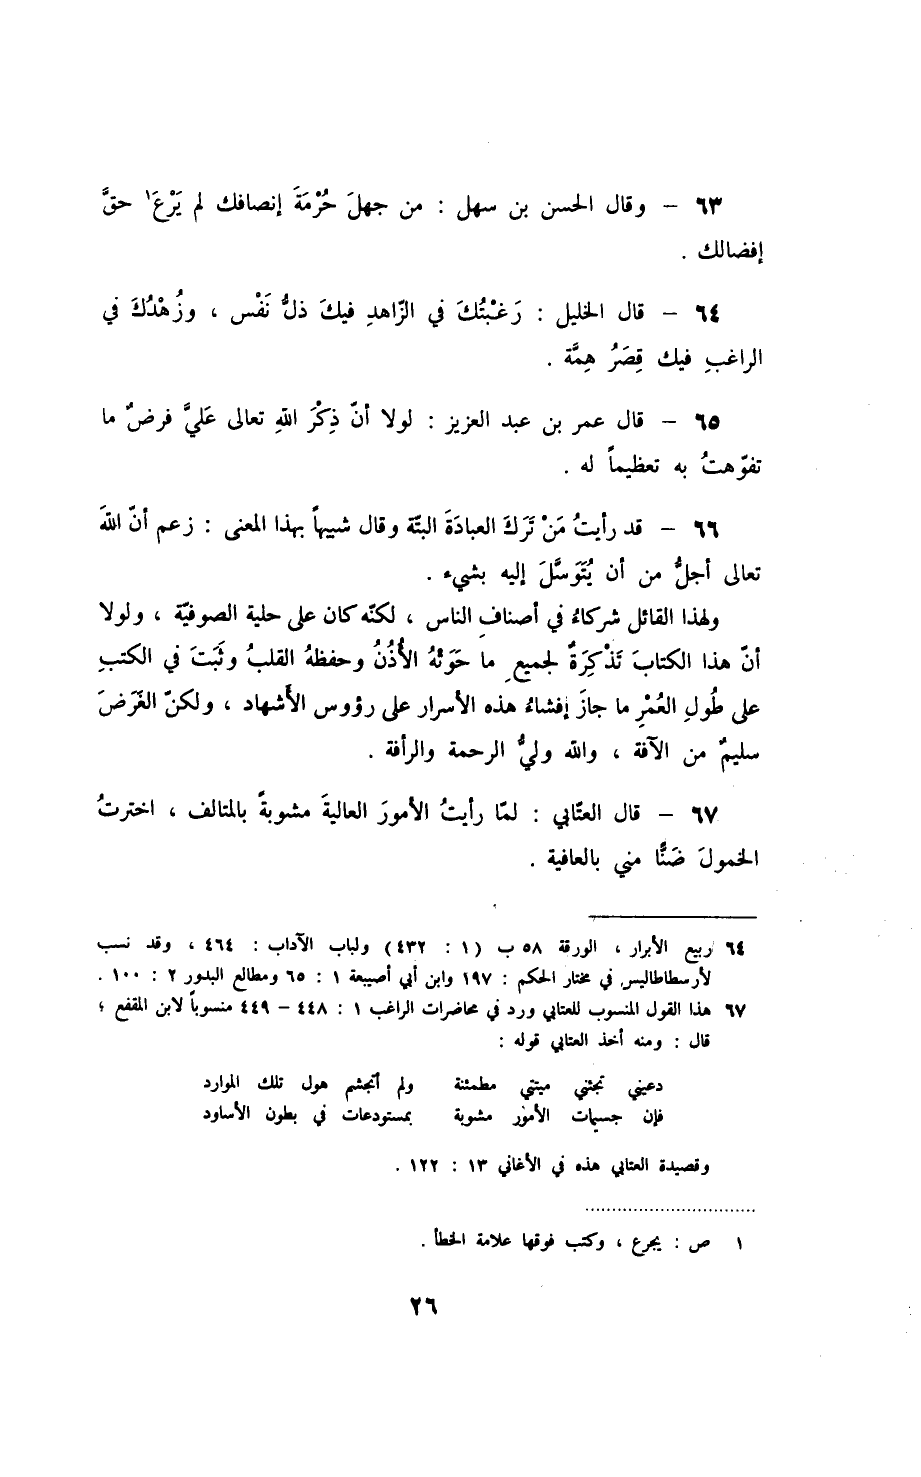 ٦٣ – وقال الحسن بن سهل : من جهلَ حُرْمَةَ إنصافك لم يَرْعَ١ حقَّ
إفضالك .
٦٤ – قال الخليل : رَغبْتُكَ في الزّاهدِ فيكَ ذلُّ نَفْس ، وزُهْدُكَ في
الراغبِ فيك قِصَرُ هِمَّة .
٦٥ – قال عمر بن عبد العزيز : لولا أنّ ذِكْرَ اللهِ تعالى عَليَّ فرضٌ ما
تفوّهتُ به تعظيماً له .
٦٦ – قد رأيتُ مَنْ تَرَكَ العبادَةَ البتّة وقال شبيهاً بهذا المعنى : زعم أنّ اللهَ
تعالى أجلُّ من أن يُتَوَسَّلَ إليه بشيء .
ولهذا القائل شركاءُ في أصنافِ الناس ، لكنّه كان على حلية الصوفيّة ، ولولا
أنّ هذا الكتابَ تَذْكِرَةٌ لجميعِ ما حَوَتْهُ الأُذُنُ وحفظهُ القلبُ وثَبَتَ في الكتبِ
على طُولِ العُمْرِ ما جازَ إفشاءُ هذه الأسرار على رؤوس الأَشهاد ، ولكنّ الغَرَضَ
سليمٌ من الآفة ، والله وليُّ الرحمة والرأفة .
٦٧ – قال العتّابي : لمّا رأيتُ الأمورَ العاليةَ مشوبةً بالمتالف ، اخترتُ
الخمولَ ضَنًّا مني بالعافية .
٦٤ ربيع الأبرار ، الورقة ٥٨ ب (١ : ٤٣٢) ولباب الآداب : ٤٦٤ ، وقد نسب
لأرسطاطاليس في مختار الحكم : ١٩٧ وابن أبي أصيبعة ١ : ٦٥ ومطالع البدور ٢ : ١٠٠ .
٦٧ هذا القول المنسوب للعتابي ورد في محاضرات الراغب ١ : ٤٤٨ – ٤٤٩ منسوباً لابن المقفع ؛
قال : ومنه أخذ العتابي قوله :
دعيني تجئني ميتتي مطمئنة ولم أتجشم هول تلك الموارد
فإن جسيمات الأمور مشوبة بمستودعات في بطون الأساود
وقصيدة العتابي هذه في الأغاني ١٣ : ١٢٢ .
١ ص : يجرع ، وكتب فوقها علامة الخطأ .
٢٦